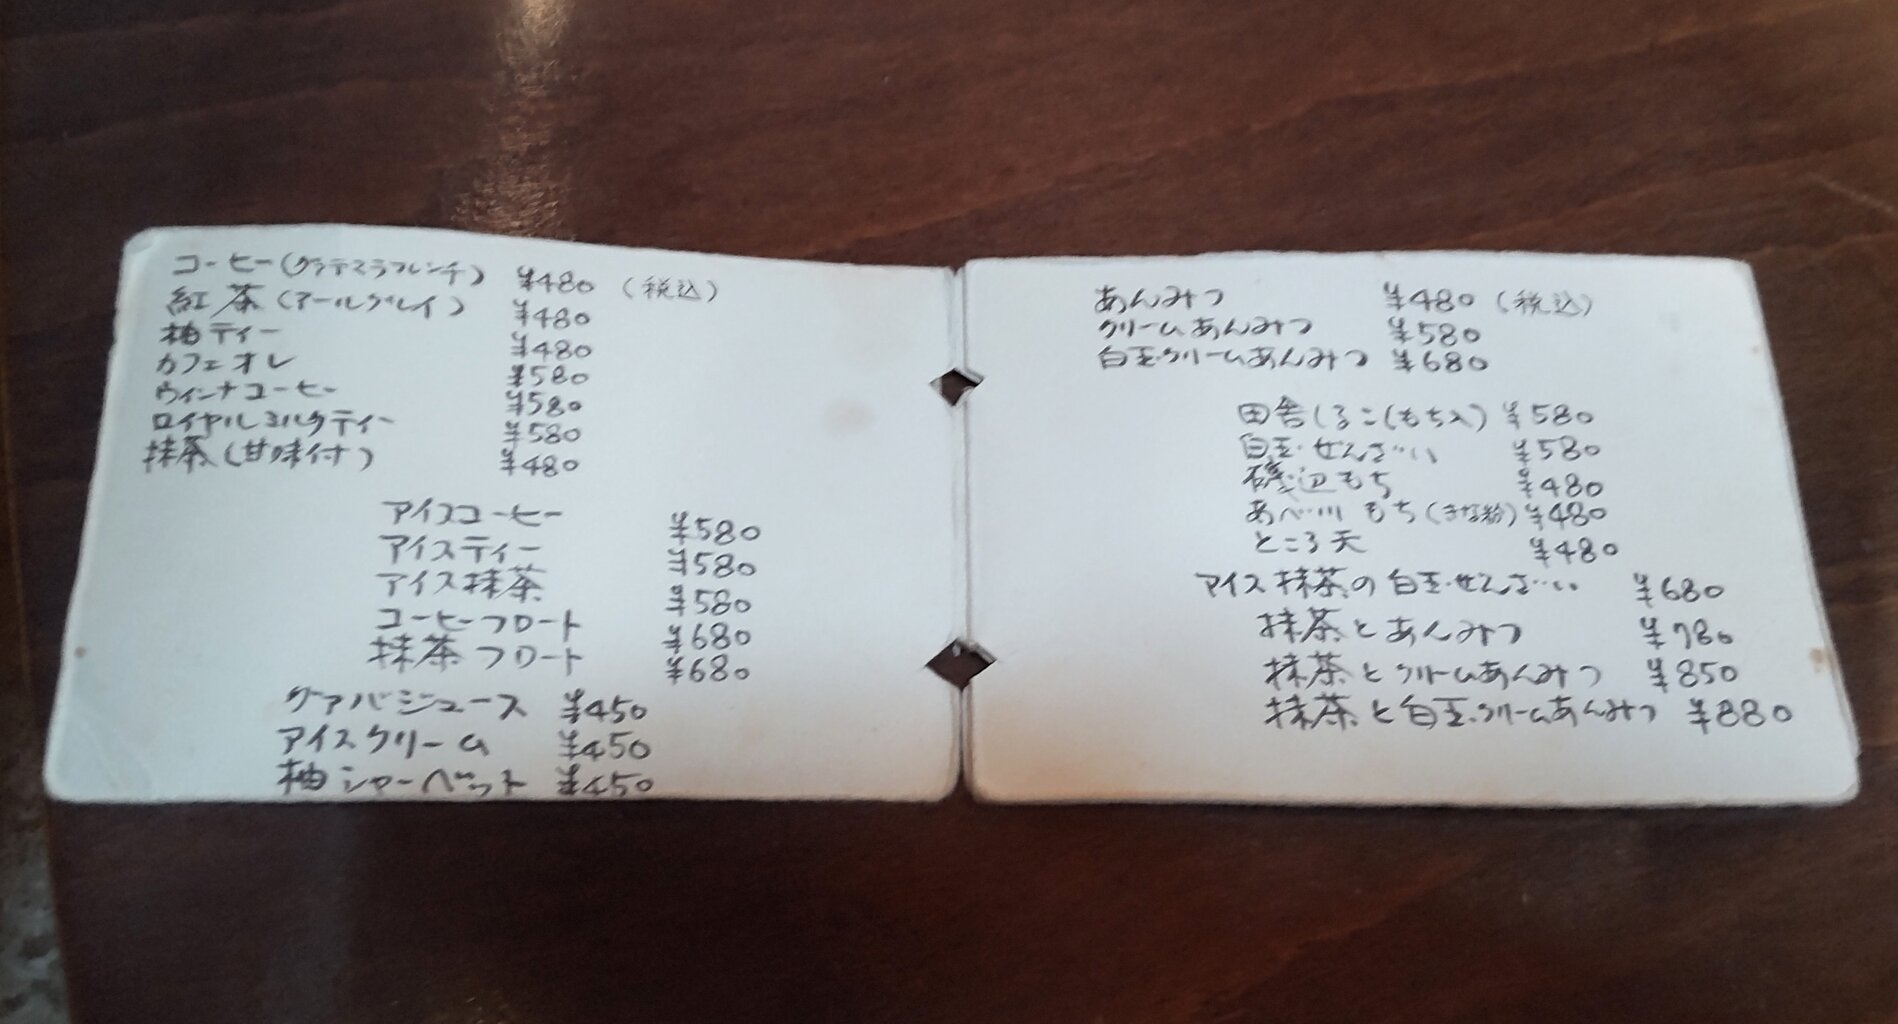 コーヒー(グァテマラフレンチ) ¥480 (税込)
紅茶(アールグレイ) ¥480
柚ティー ¥480
カフェオレ ¥580
ウィンナコーヒー ¥580
ロイヤルミルクティー ¥580
抹茶(甘味付) ¥480
アイスコーヒー ¥580
アイスティー ¥580
アイス抹茶 ¥580
コーヒーフロート ¥680
抹茶フロート ¥680
グァバジュース ¥450
アイスクリーム ¥450
柚シャーベット ¥450
あんみつ ¥480 (税込)
クリームあんみつ ¥580
白玉クリームあんみつ ¥680
田舎しるこ(もち入) ¥580
白玉ぜんざい ¥580
磯辺もち ¥480
あべ川もち(きな粉) ¥480
ところ天 ¥480
アイス抹茶の白玉ぜんざい ¥680
抹茶とあんみつ ¥780
抹茶とクリームあんみつ ¥850
抹茶と白玉クリームあんみつ ¥880